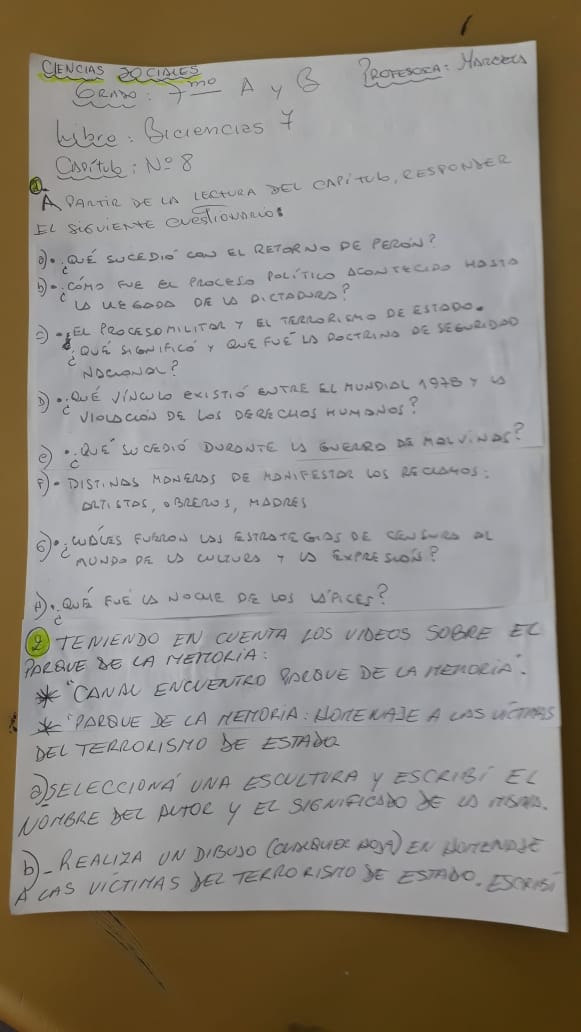 CIENCIAS SOCIALES
GRADO: 7mo A y B PROFESORA: MARCELA
Libro: Biciencias 7
Capítulo: Nº 8
1- A PARTIR DE LA LECTURA DEL CAPÍTULO, RESPONDER
EL SIGUIENTE CUESTIONARIO:
a)•¿QUÉ SUCEDIÓ CON EL RETORNO DE PERÓN?
b)•¿CÓMO FUE EL PROCESO POLÍTICO ACONTECIDO HASTA
LA LLEGADA DE LA DICTADURA?
c)•EL PROCESO MILITAR Y EL TERRORISMO DE ESTADO.
¿QUÉ SIGNIFICÓ Y QUE FUÉ LA DOCTRINA DE SEGURIDAD
NACIONAL?
D)•¿QUÉ VÍNCULO EXISTIÓ ENTRE EL MUNDIAL 1978 Y LA
VIOLACIÓN DE LOS DERECHOS HUMANOS?
e)•¿QUÉ SUCEDIÓ DURANTE LA GUERRA DE MALVINAS?
F)•DISTINAS MANERAS DE MANIFESTAR LOS RECLAMOS:
ARTISTAS, OBREROS, MADRES
G)•¿CUÁLES FUERON LAS ESTRATEGIAS DE CENSURA AL
MUNDO DE LA CULTURA Y LA EXPRESIÓN?
H)•¿QUÉ FUÉ LA NOCHE DE LOS LÁPICES?
2 TENIENDO EN CUENTA LOS VIDEOS SOBRE EL
PARQUE DE LA MEMORIA:
* "CANAL ENCUENTRO PARQUE DE LA MEMORIA".
* "PARQUE DE LA MEMORIA: HOMENAJE A LAS VÍCTIMAS
DEL TERRORISMO DE ESTADO
a) SELECCIONÁ UNA ESCULTURA Y ESCRIBÍ EL
NOMBRE DEL AUTOR Y EL SIGNIFICADO DE LA MISMA.
b)- REALIZA UN DIBUJO (CUALQUIER HOJA) EN HOMENAJE
A LAS VÍCTIMAS DEL TERRORISMO DE ESTADO. ESCRIBÍ